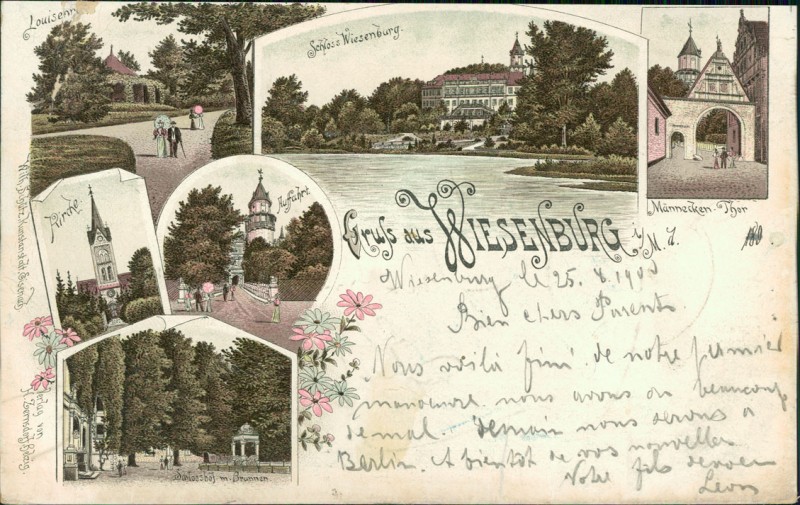 Louisen
Schloss Wiesenburg.
Männecken-Thor
Kirche
Auffahrt
Gruss aus WIESENBURG i/M.
Schlosshof m. Brunnen
Verlag von
Wiesenburg le 25.
Bien chers Parents
Nous voilà fini de notre premier
manoeuvre nous avons eu beaucoup
de mal. Demain nous serons a
Berlin. A bientot de vos nouvelles
Votre fils
Leon